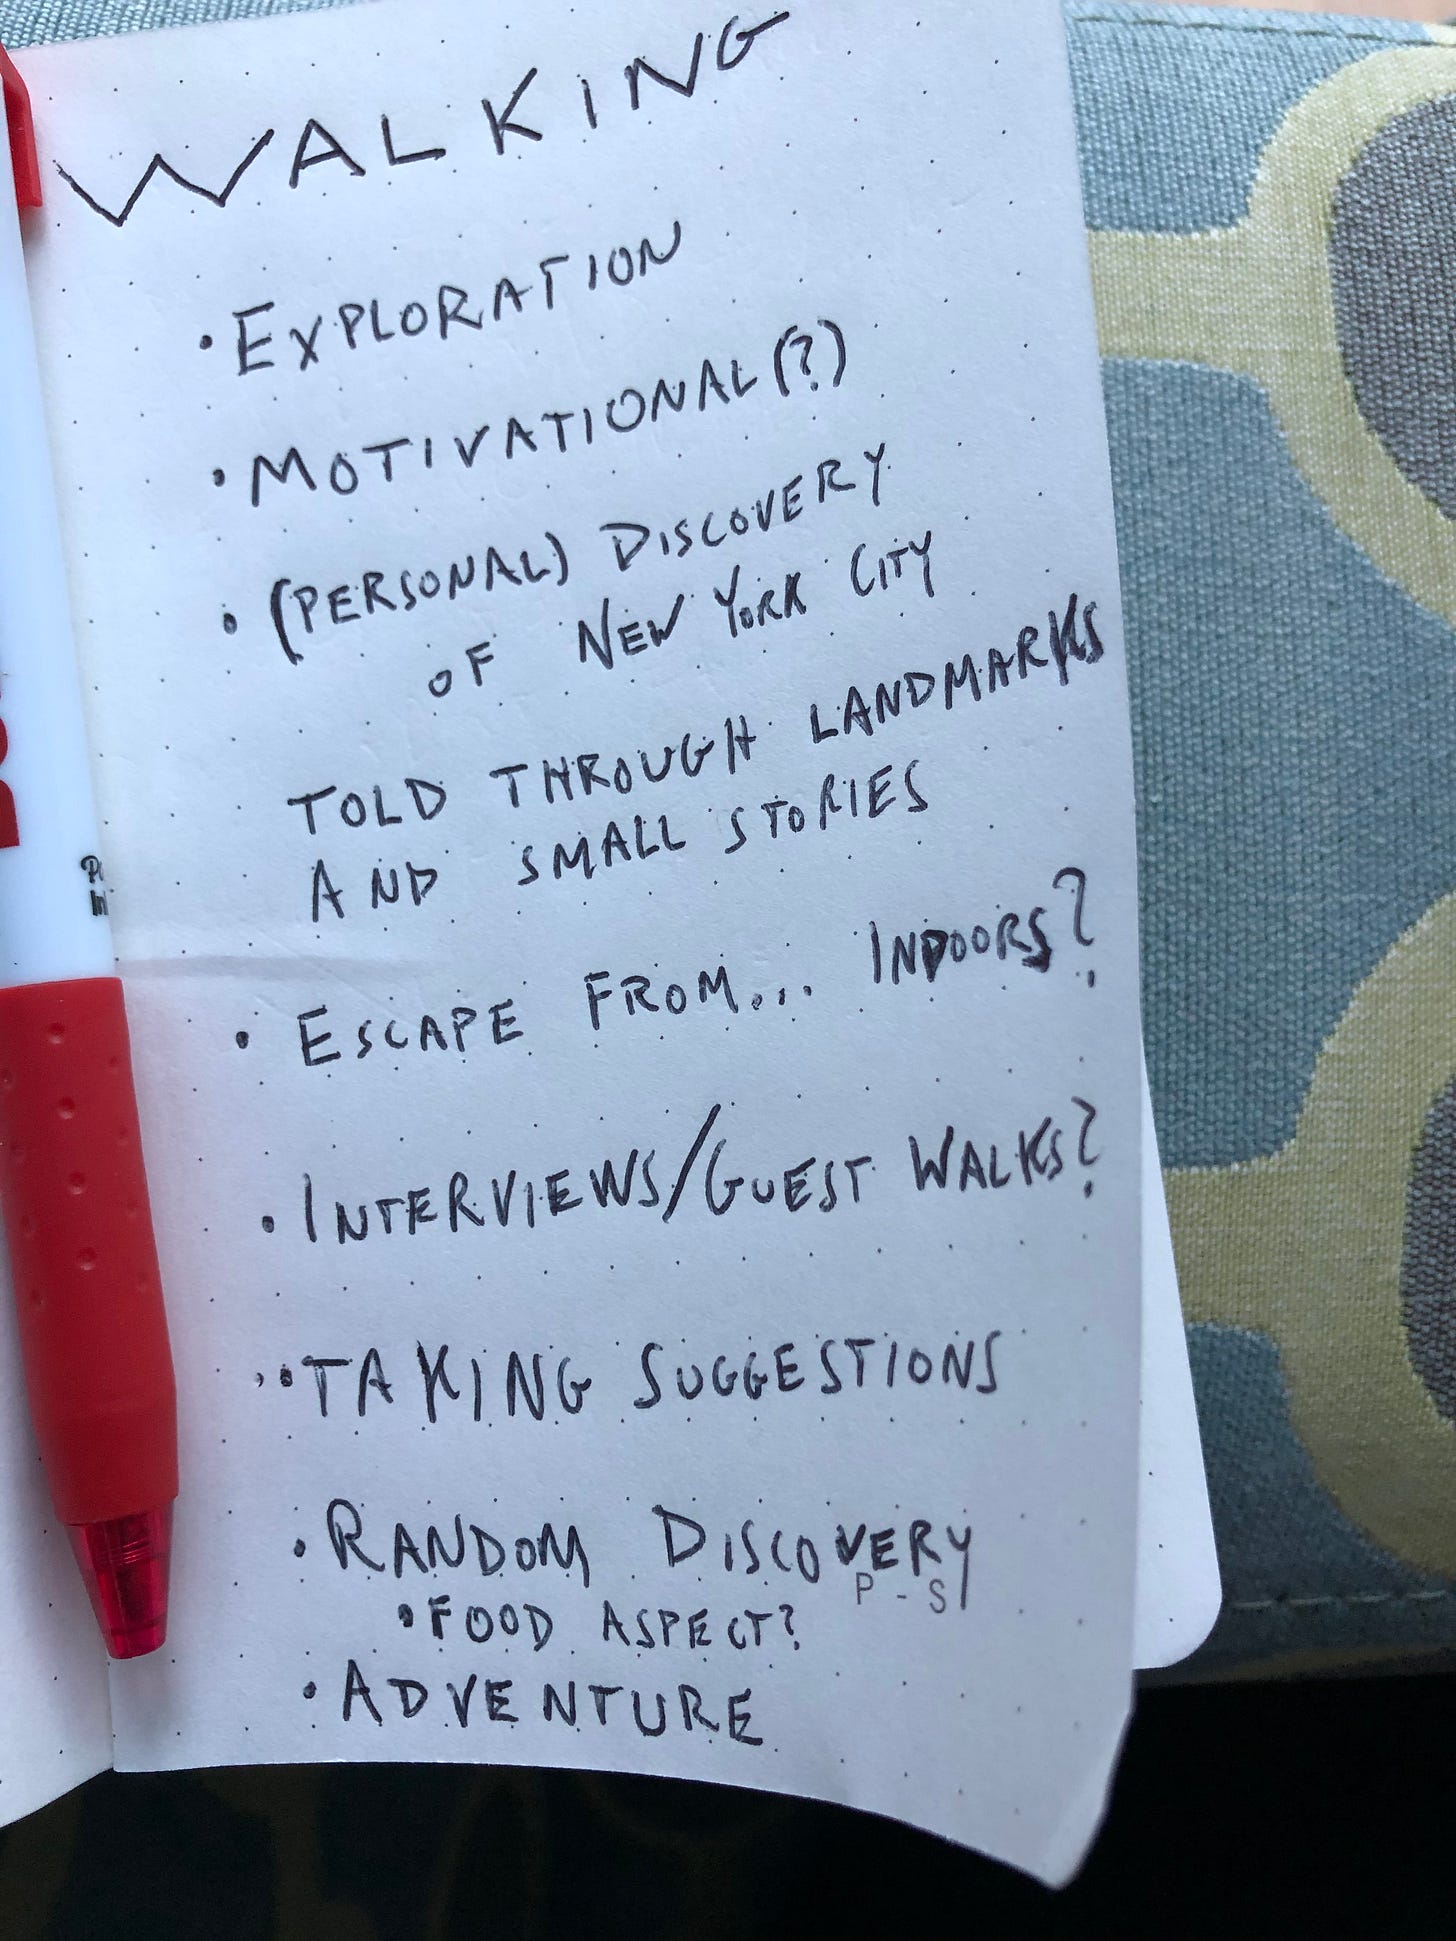 WALKING
• EXPLORATION
• MOTIVATIONAL(?)
• (PERSONAL) DISCOVERY
OF NEW YORK CITY
TOLD THROUGH LANDMARKS
AND SMALL STORIES
• ESCAPE FROM... INDOORS?
• INTERVIEWS/GUEST WALKS?
• TAKING SUGGESTIONS
• RANDOM DISCOVERY
P - S
• FOOD ASPECT?
• ADVENTURE